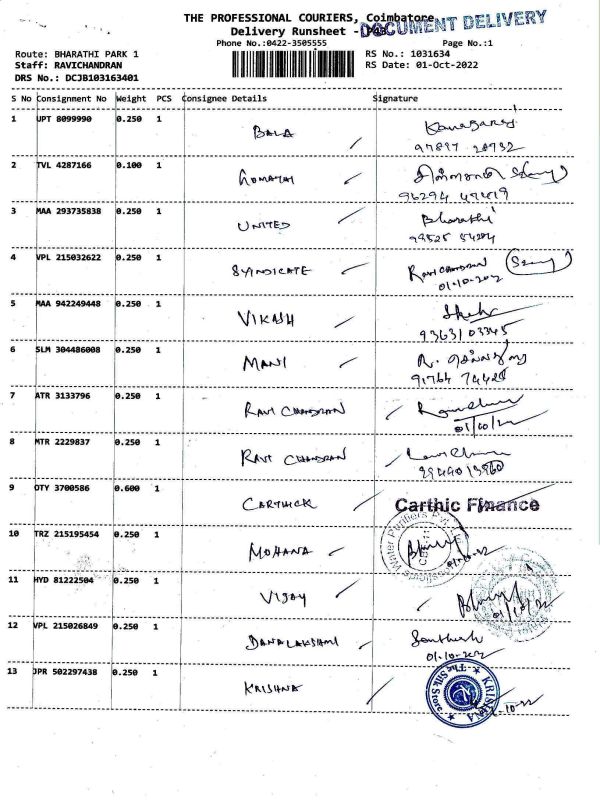 THE PROFESSIONAL COURIERS, Coimbatore
DOCUMENT DELIVERY
Delivery Runsheet -
Phone No.:0422-3505555
Page No.:1
Route: BHARATHI PARK 1
RS No.: 1031634
Staff: RAVICHANDRAN
RS Date: 01-Oct-2022
DRS No.: DCJB103163401
S No Consignment No Weight PCS Consignee Details Signature
1 UPT 8099990 0.250 1 BALA
2 TVL 4287166 0.100 1 GOMATHI
3 MAA 293735838 0.250 1 UNITED Bharathi
4 VPL 215032622 0.250 1 SYINDICATE RAVICHANDRAN
01-10-202
5 MAA 942249448 0.250 1 VIKASH
93631 03345
6 SLM 304486008 0.250 1 MANI
7 ATR 3133796 0.250 1 RAVI CHANDRAN
01/10/22
8 MTR 2229837 0.250 1 RAVI CHANDRAN
9 OTY 3700586 0.600 1 CARTHICK Carthic Finance
10 TRZ 215195454 0.250 1 MOHANA
Water Purifiers
11 HYD 81222504 0.250 1 VIJAY
01/10/22
12 VPL 215026849 0.250 1 DANALAKSHMI Santhosh
01-10-202
13 JPR 502297438 0.250 1 KRISHNA
KRISHNA
The Silk Store
-10-22